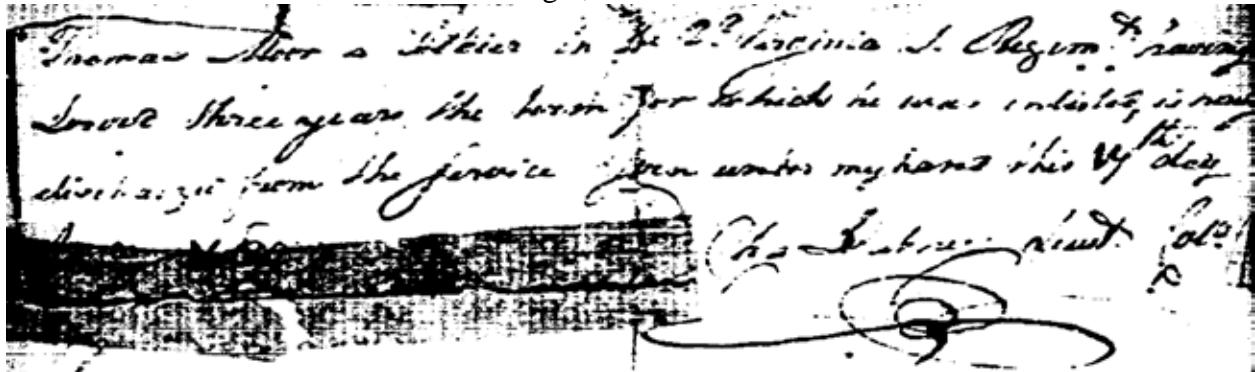 Thomas Moor a Soldier in the 2d Virginia S. Regimt. having
Served three years the term for which he was enlisted, is now
discharged from the Service Given under my hand this day
Chs Dabney Lieut. Col.